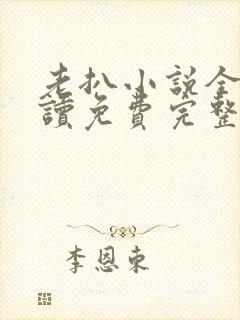 老扒小説全
讀免費完整
李恩東